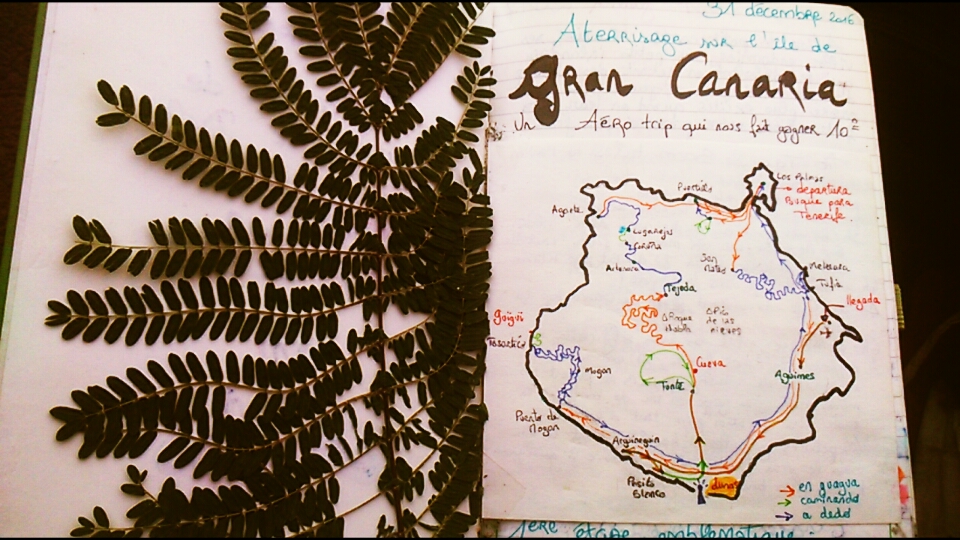 31 décembre 2016
Aterrisage sur l'île de
Gran Canaria
Un Aéro trip qui nous fait gagner 10
Las Palmas
departura
Buque para
Tenerife
Agaete
Artenara
Tejeda
San
Mateo
Melenara
Tufia
llegada
Pico
de las
nieves
güigüi
Tasartico
Cueva
Mogan
Tunte
Agüimes
Puerto de
Mogan
Arguineguin
Pasito
Blanco
dunas
en guagua
caminando
a dedo
1ère étape emblématique: